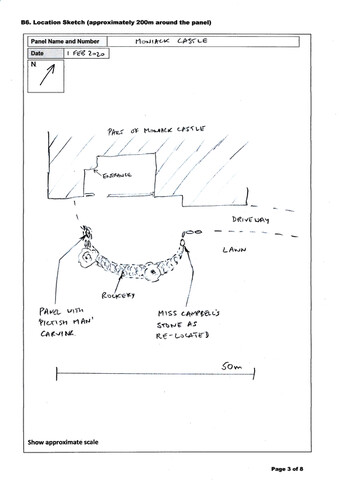 B6. Location Sketch (approximately 200m around the panel)
Panel Name and Number
MONIACK CASTLE
Date
1 FEB 2020
N
PART OF MONIACK CASTLE
ENTRANCE
DRIVEWAY
LAWN
ROCKERY
PANEL WITH
PICTISH MAN'
CARVING
MISS CAMPBELL'S
STONE AS
RE-LOCATED
50m
Show approximate scale
Page 3 of 8